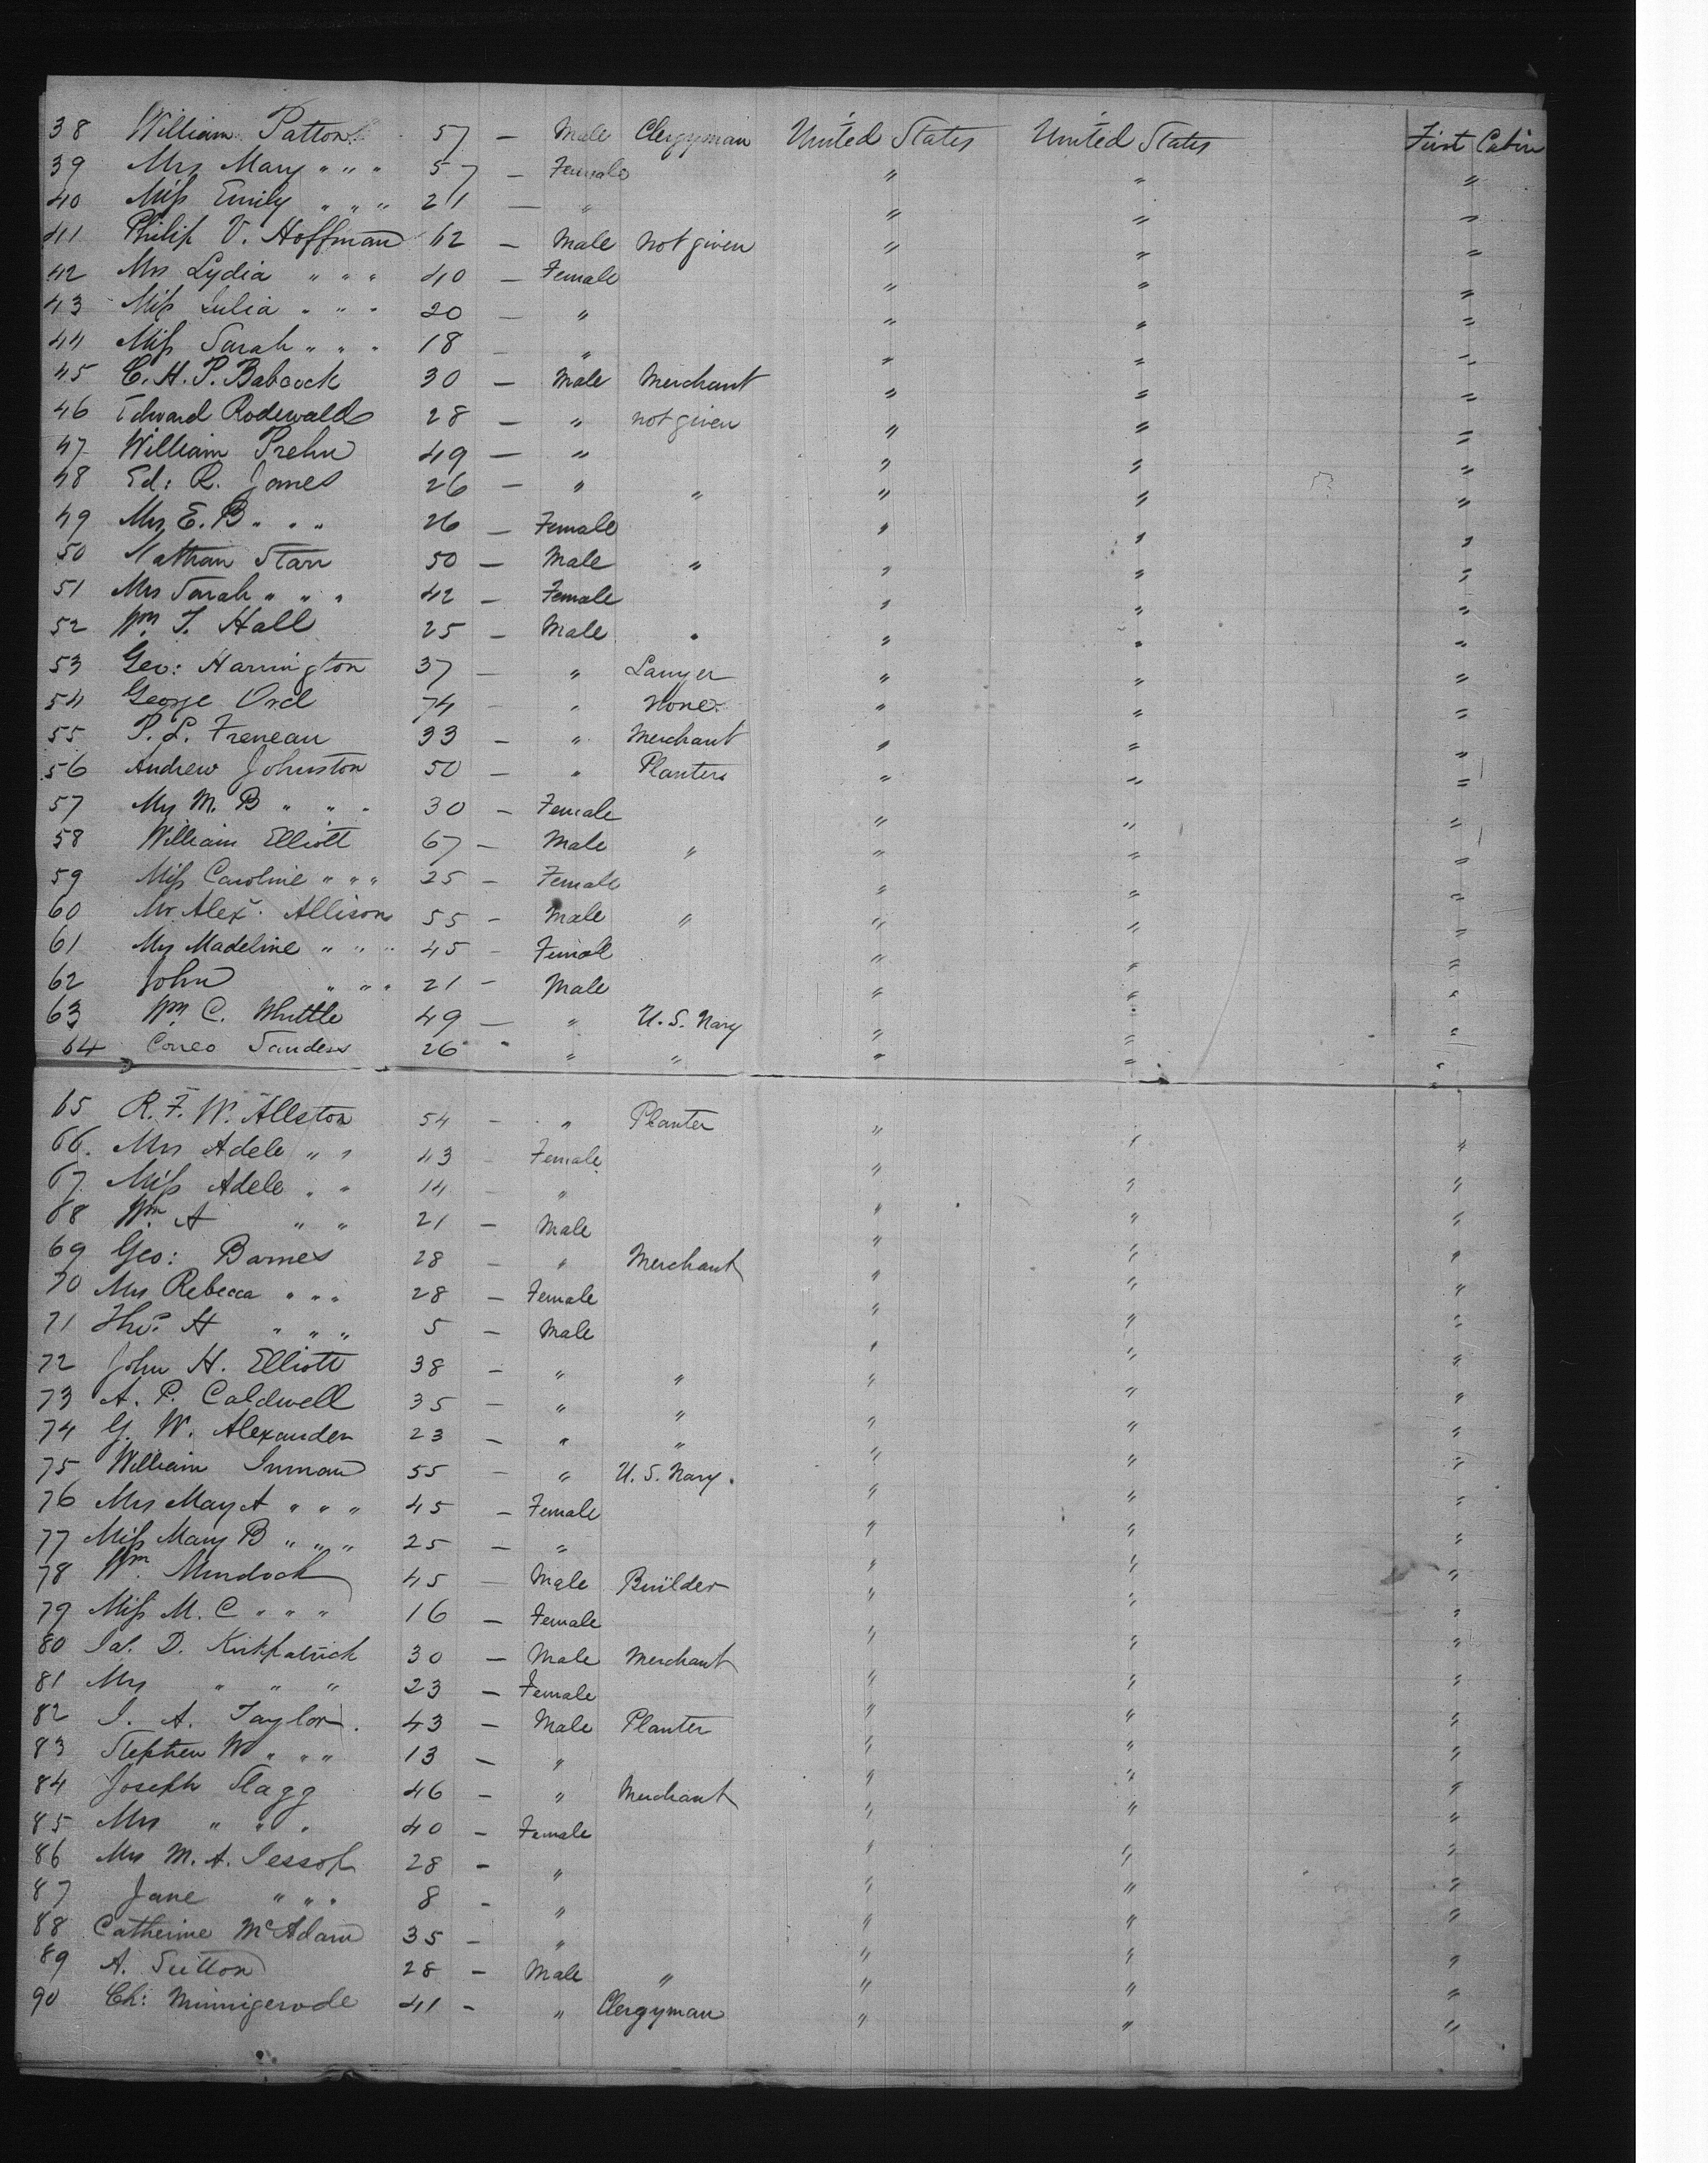 38 William Patton 57 — Male Clergyman United States United States First Cabin
39 Mrs Mary " " " 57 — Female " " "
40 Miss Emily " " " 21 — " " " "
41 Philip V. Hoffman 62 — Male not given " " "
42 Mrs Lydia " " " 40 — Female " " "
43 Miss Julia " " " 20 — " " " "
44 Miss Sarah " " " 18 — " " " "
45 C. H. P. Babcock 30 — Male Merchant " " "
46 Edward Rodewald 28 — " not given " " "
47 William Prehn 49 — " " " "
48 Ed: R. Jones 26 — " " " " "
49 Mrs E. B " " " 26 — Female " " "
50 Nathan Starr 50 — Male " " " "
51 Mrs Sarah " " " 42 — Female " " "
52 Wm T. Hall 25 — Male " " " "
53 Geo: Harrington 37 — " Lawyer " " "
54 George Ord 74 — " None " " "
55 P. L. Freneau 33 — " Merchant " " "
56 Andrew Johnston 50 — " Planters " " "
57 Mrs M. B " " " 30 — Female " " "
58 William Elliott 67 — Male " " " "
59 Miss Caroline " " " 25 — Female " " "
60 Mr Alexr. Allison 55 — Male " " " "
61 Mrs Madeline " " " 45 — Female " " "
62 John " " " 21 — Male " " "
63 Wm C. Whittle 49 — " U. S. Navy " " "
64 Sanders 26 " " " " " "
65 R. F. W. Allston 54 — " Planter " " "
66. Mrs Adele " " 43 — Female " " "
67 Miss Adele " " 14 — " " " "
68 Wm A " " 21 — Male " " "
69 Geo: Barnes 28 — " Merchant " " "
70 Mrs Rebecca " " " 28 — Female " " "
71 Thos. H " " " 5 — Male " " "
72 John H. Elliott 38 — " " " " "
73 A. P. Caldwell 35 — " " " " "
74 G. W. Alexander 23 — " " " " "
75 William Inman 55 — " U. S. Navy. " " "
76 Mrs Mary A " " " 45 — Female " " "
77 Miss Mary B " " " 25 — " " " "
78 Wm. Murdock 45 — Male Builder " " "
79 Miss M. C " " " 16 — Female " " "
80 Jas. D. Kirkpatrick 30 — Male Merchant " " "
81 Mrs " " " 23 — Female " " "
82 J. A. Taylor. 43 — Male Planter " " "
83 Stephen W " " " 13 — " " " "
84 Joseph Slagg 46 — " Merchant " " "
85 Mrs " " " 40 — Female " " "
86 Mrs M. A. Jessop 28 — " " " "
87 Jane " " " 8 — " " " "
88 Catherine McAdam 35 — " " " "
89 A. Sutton 28 — Male " " " "
90 Ch: Minnigerode 41 — " Clergyman " " "